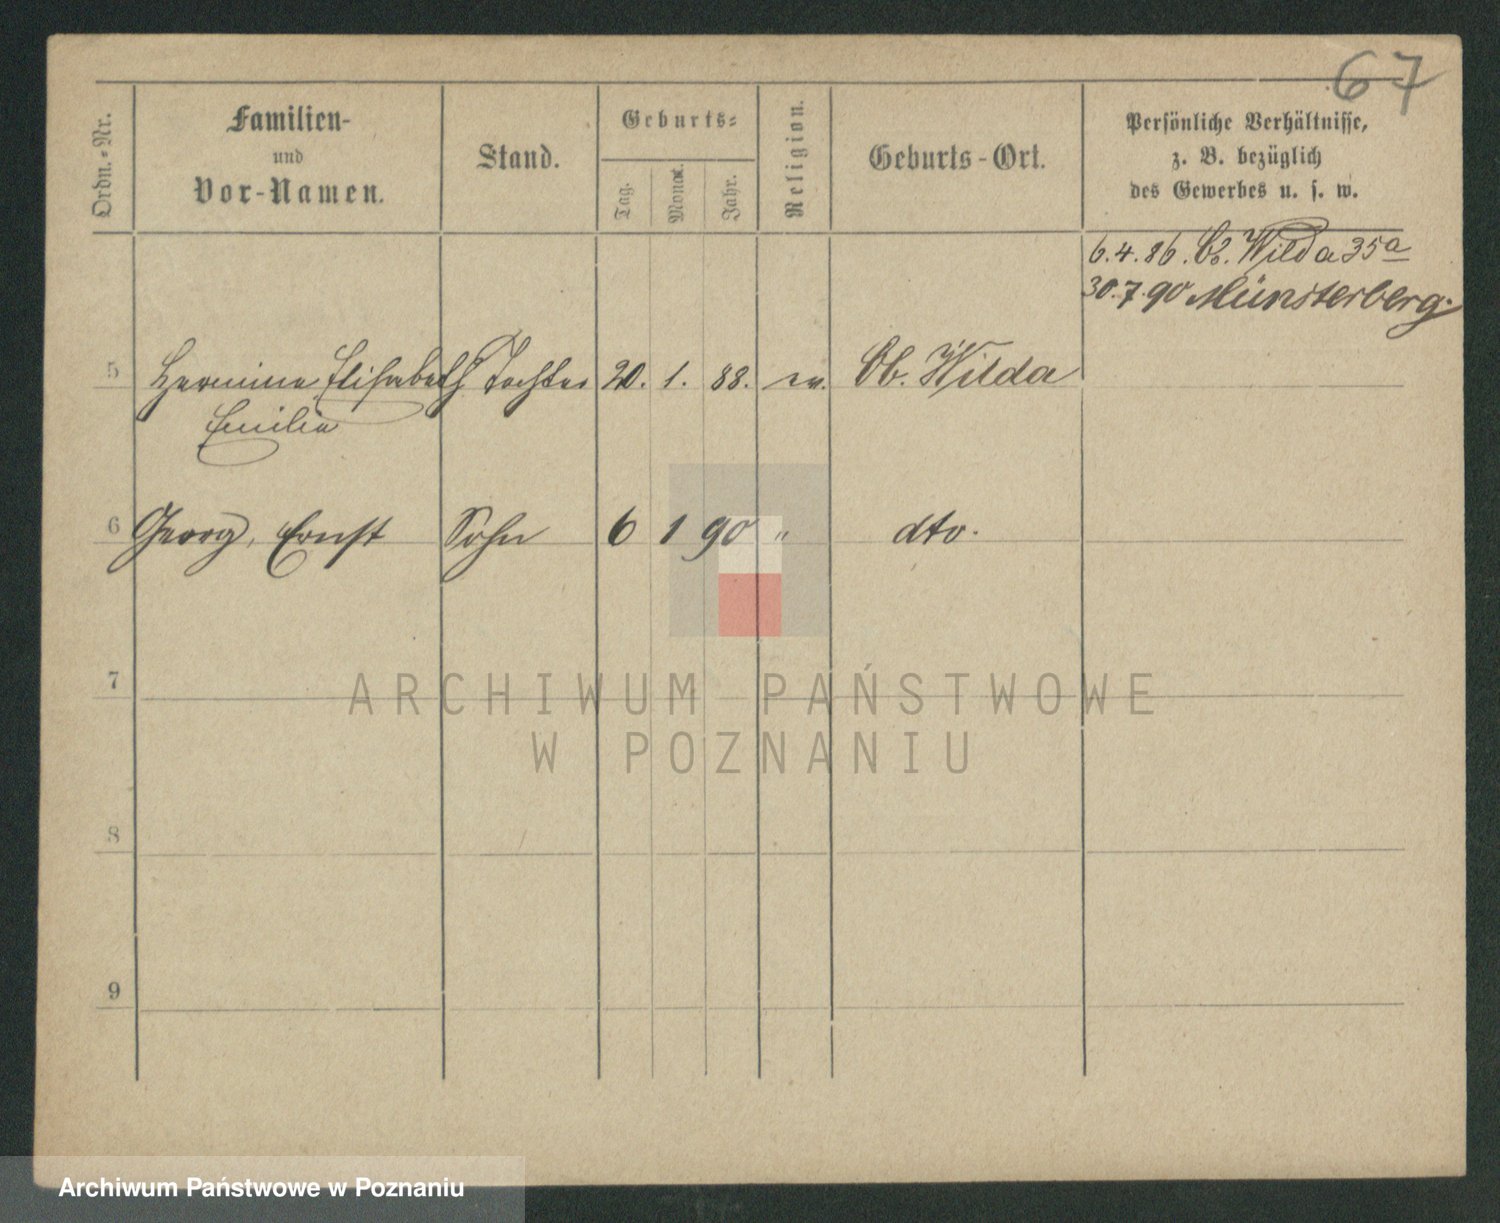 67
Ordn.-Nr.
Familien-
und
Vor-Namen.
Stand.
Geburts-
Tag.
Monat.
Jahr.
Religion.
Geburts-Ort.
Persönliche Verhältnisse,
z. B. bezüglich
des Gewerbes u. s. w.
6.4.86. Ob. Wilda 35a
30.7.90 Münsterberg.
5 Hermine Elisabeth Tochter 20. 1. 88. ev. Ob. Wilda
Emilie
6 Georg, Ernst Sohn 6 1 90 " dto.
7
ARCHIWUM PAŃSTWOWE
W POZNANIU
8
9
Archiwum Państwowe w Poznaniu